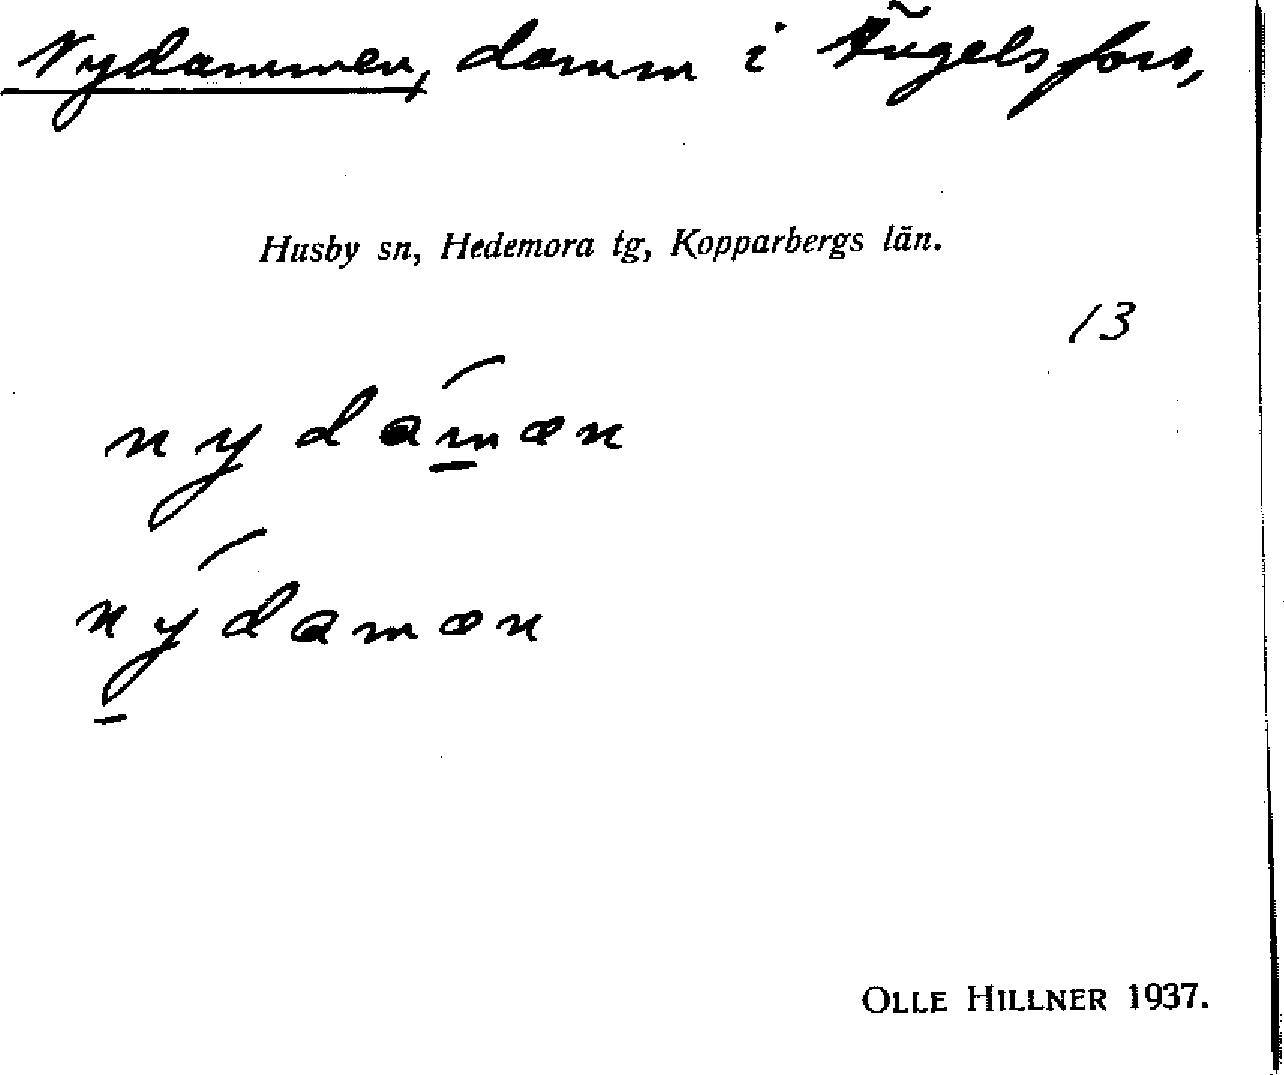 Nydammen, damm i Ängelsfors,
Husby sn, Hedemora tg, Kopparbergs län.
13
nydamæn
nydamæn
OLLE HILLNER 1937.